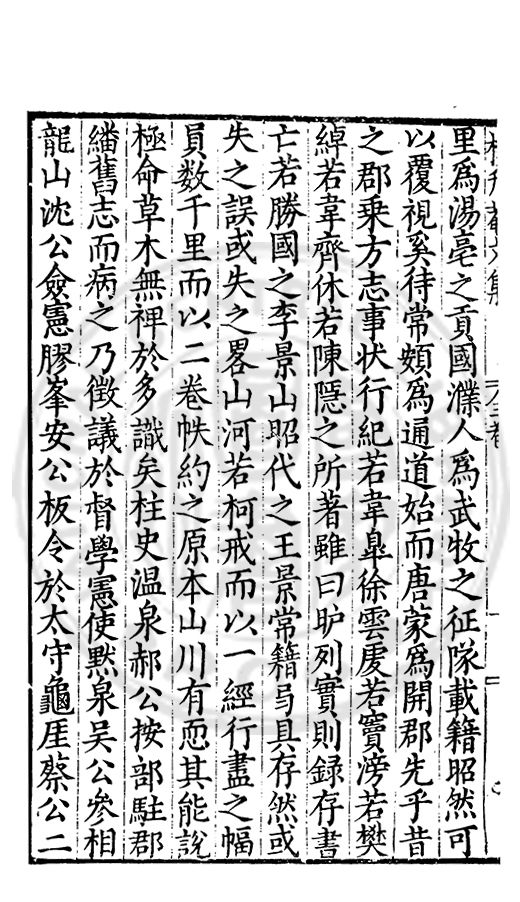 里爲湯亳之貢國濮人爲武牧之征隊載籍昭然可
以覆視奚待常頞爲通道始而唐蒙爲開郡先乎昔
之郡乗方志事状行紀若韋臯徐雲䖍若竇滂若樊
綽若韋齊休若陳隱之所著雖曰胪列實則録存書
亡若勝國之李景山昭代之王景常籍与具存然或
失之誤或失之畧山河若柯戒而以一經行盡之幅
員数千里而以二卷帙約之原本山川有恧其能説
極命草木無禆於多識矣柱史温泉郝公按部駐郡
繙舊志而病之乃徴議於督學憲使黙泉吴公參相
龍山沈公僉憲膠峯安公板令於太守龜厓蔡公二